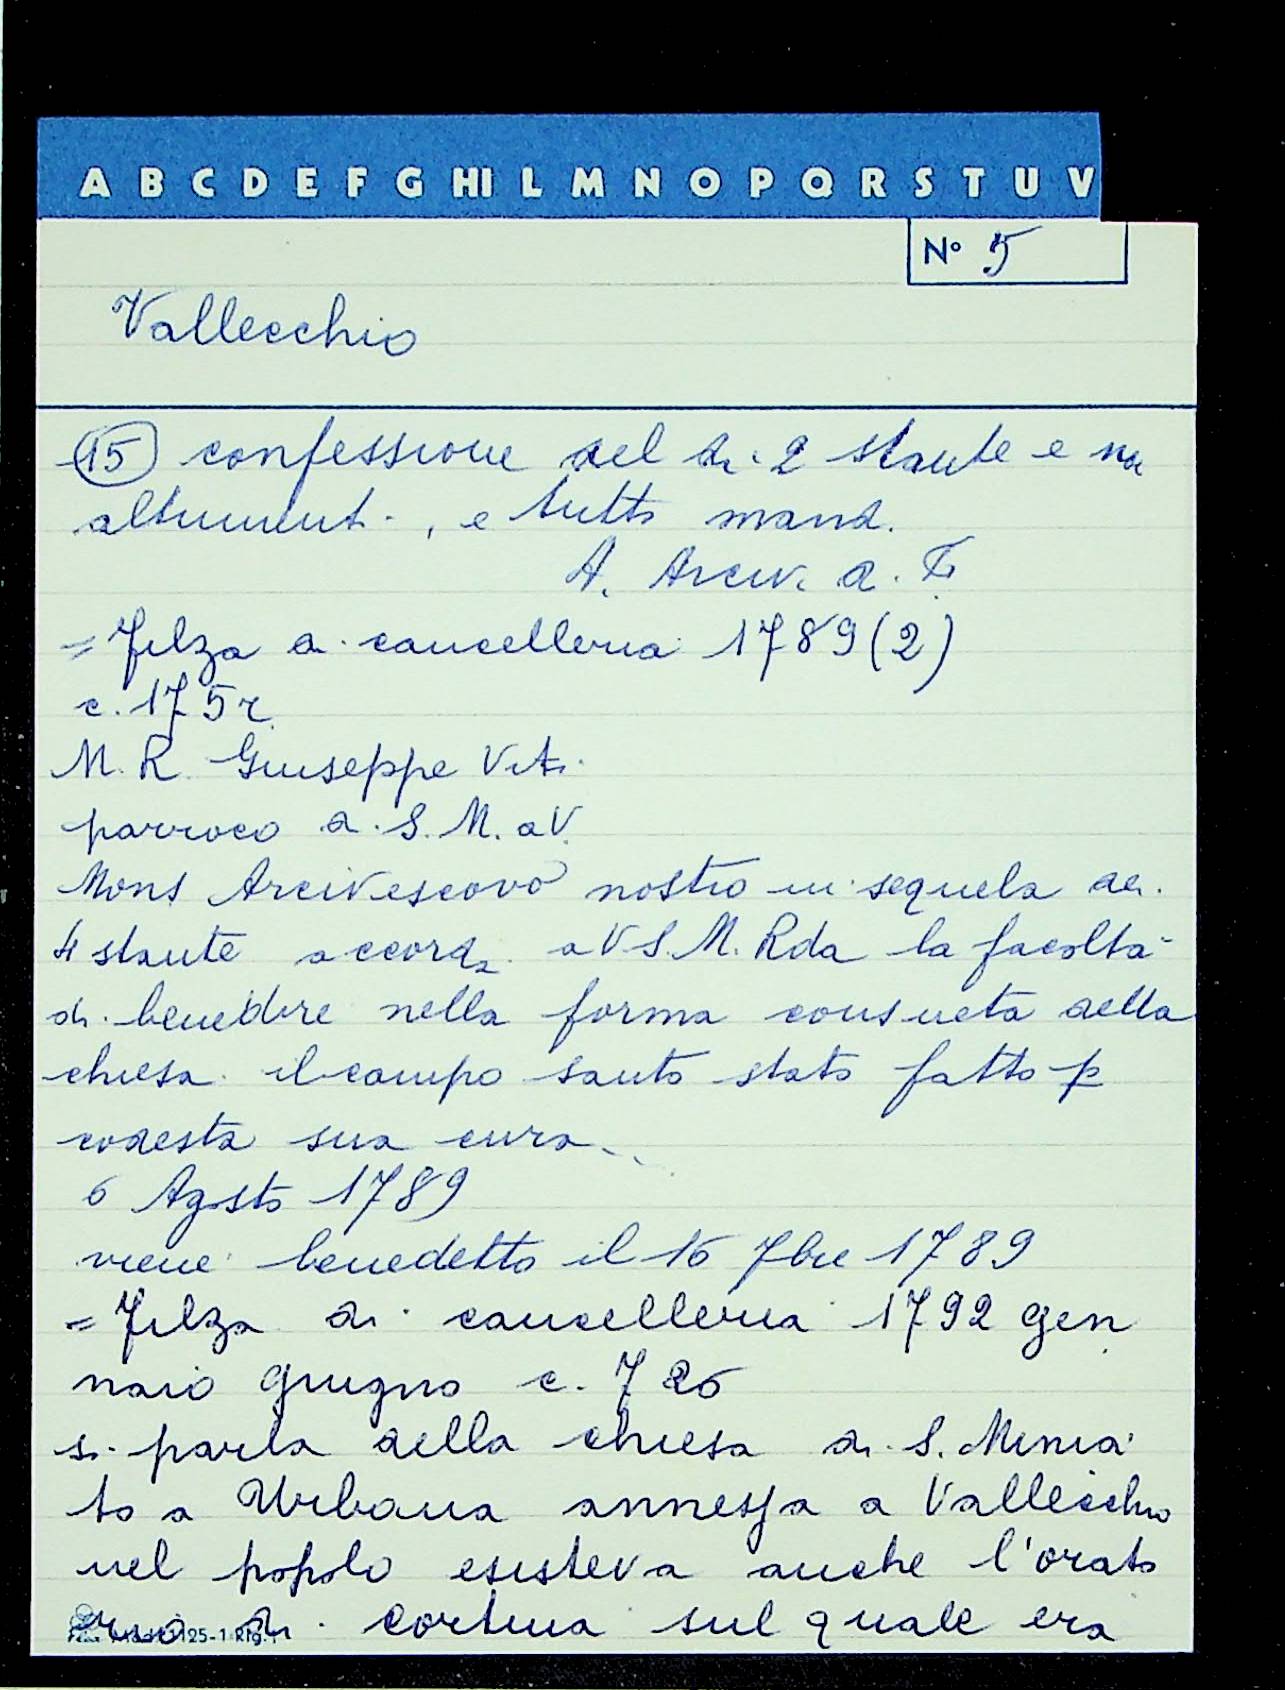 A B C D E F G HI L M N O P Q R S T U V
N° 5
Vallecchio
(15) confessione del di 2 stante e no
altriment., e tutto mand.
A. Arciv. d. F.
= Filza di cancelleria 1789 (2)
c. 175r.
M. R. Giuseppe Viti
parroco d. S. M. a V.
Mons Arcivescovo nostro in sequela dei
4 stante accorda a V S. M. Rda la facoltà
di benedire nella forma consueta della
chiesa il campo santo stato fatto p
codesta sua cura..
6 Agosto 1789
viene benedetto il 16 7bre 1789
= Filza di cancelleria 1792 gen
naio giugno c. 726
si parla della chiesa di S. Minia
to a Urbana annessa a Vallecchio
nel popolo esisteva anche l'orato
rio di cortina sul quale era